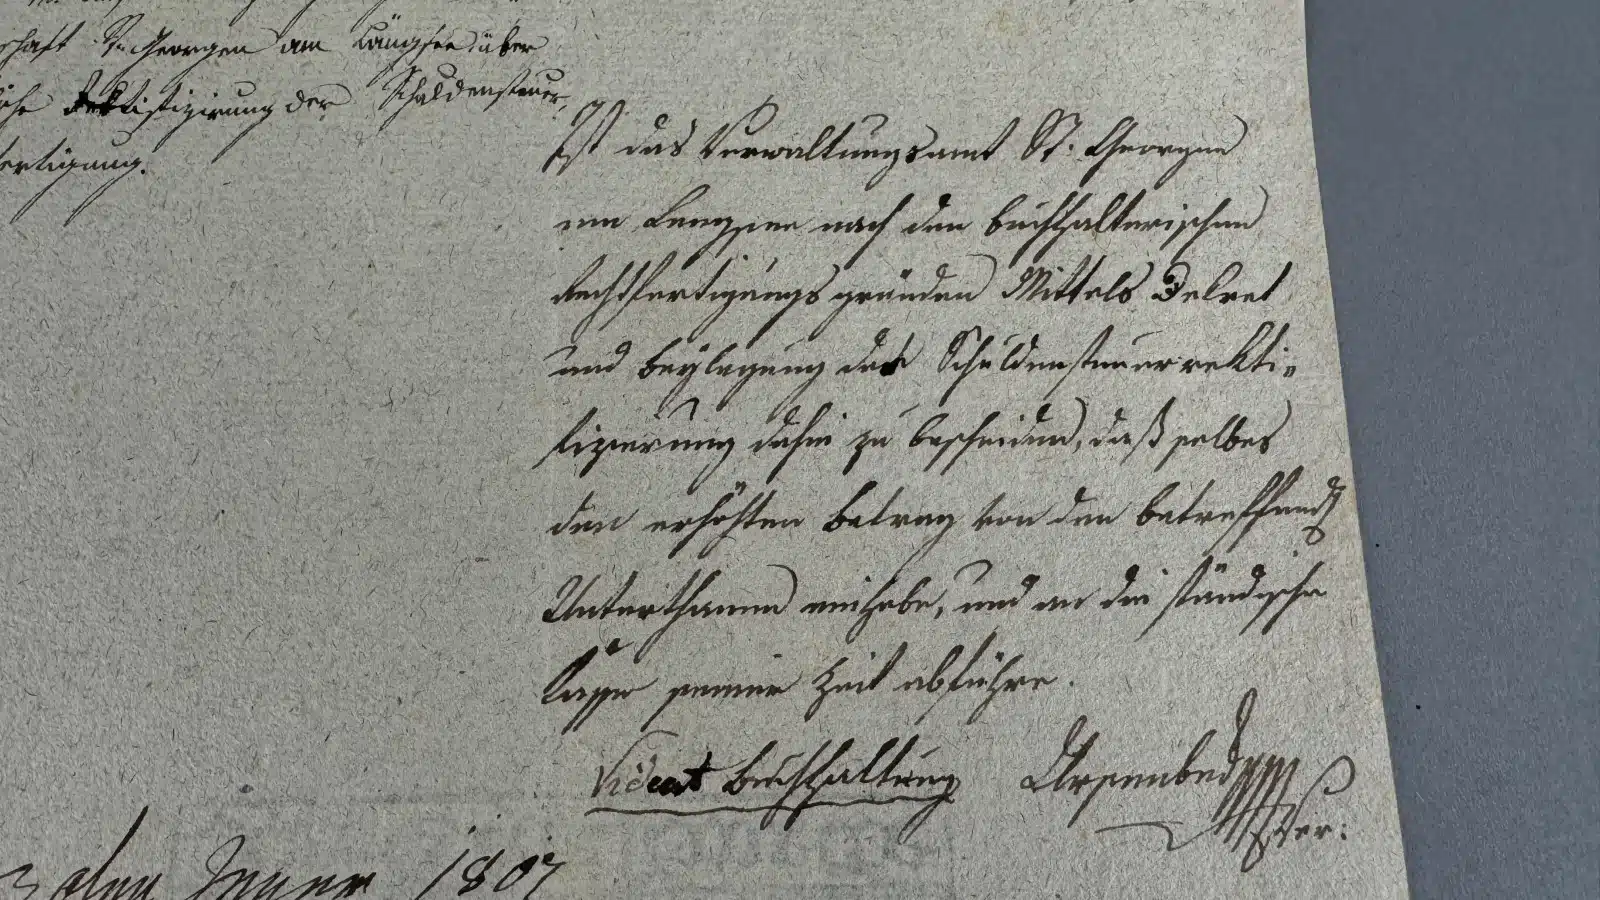 schaft St. Georgen am Längsee über
Rektifizirung der Schuldensteuer,
fertigung.
Ist das Verwaltungsamt St. Georgen
am Lengsee nach den buchhalterischen
Rechtfertigungsgründen Mittels Dekret
und Beylegung der Schuldensteuerrekti-
fizierung dahin zu bescheiden, daß selbes
den erhöhten Betrag von den betreffend
Unterthanen einhebe, und an die ständische
Kasse seiner Zeit abführe.
Videat Buchhaltung
Jener 1807